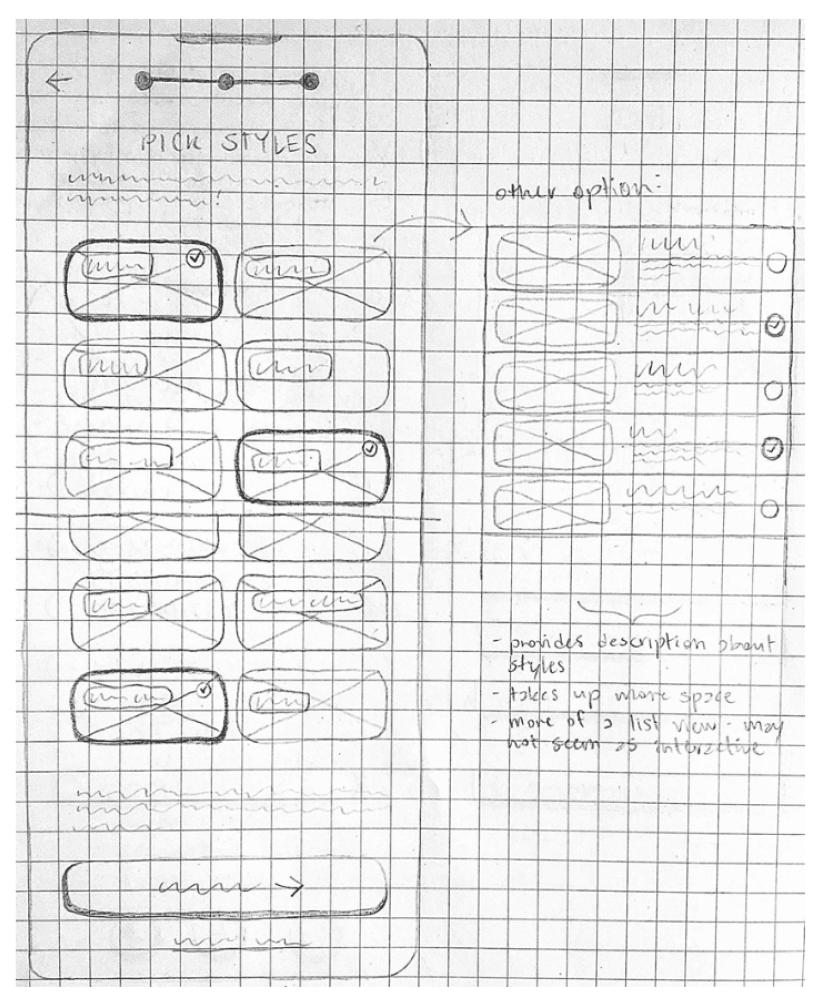 PICK STYLES
other option:
- provides description about
styles
- takes up more space
- more of a list view - may
not seem as interactive